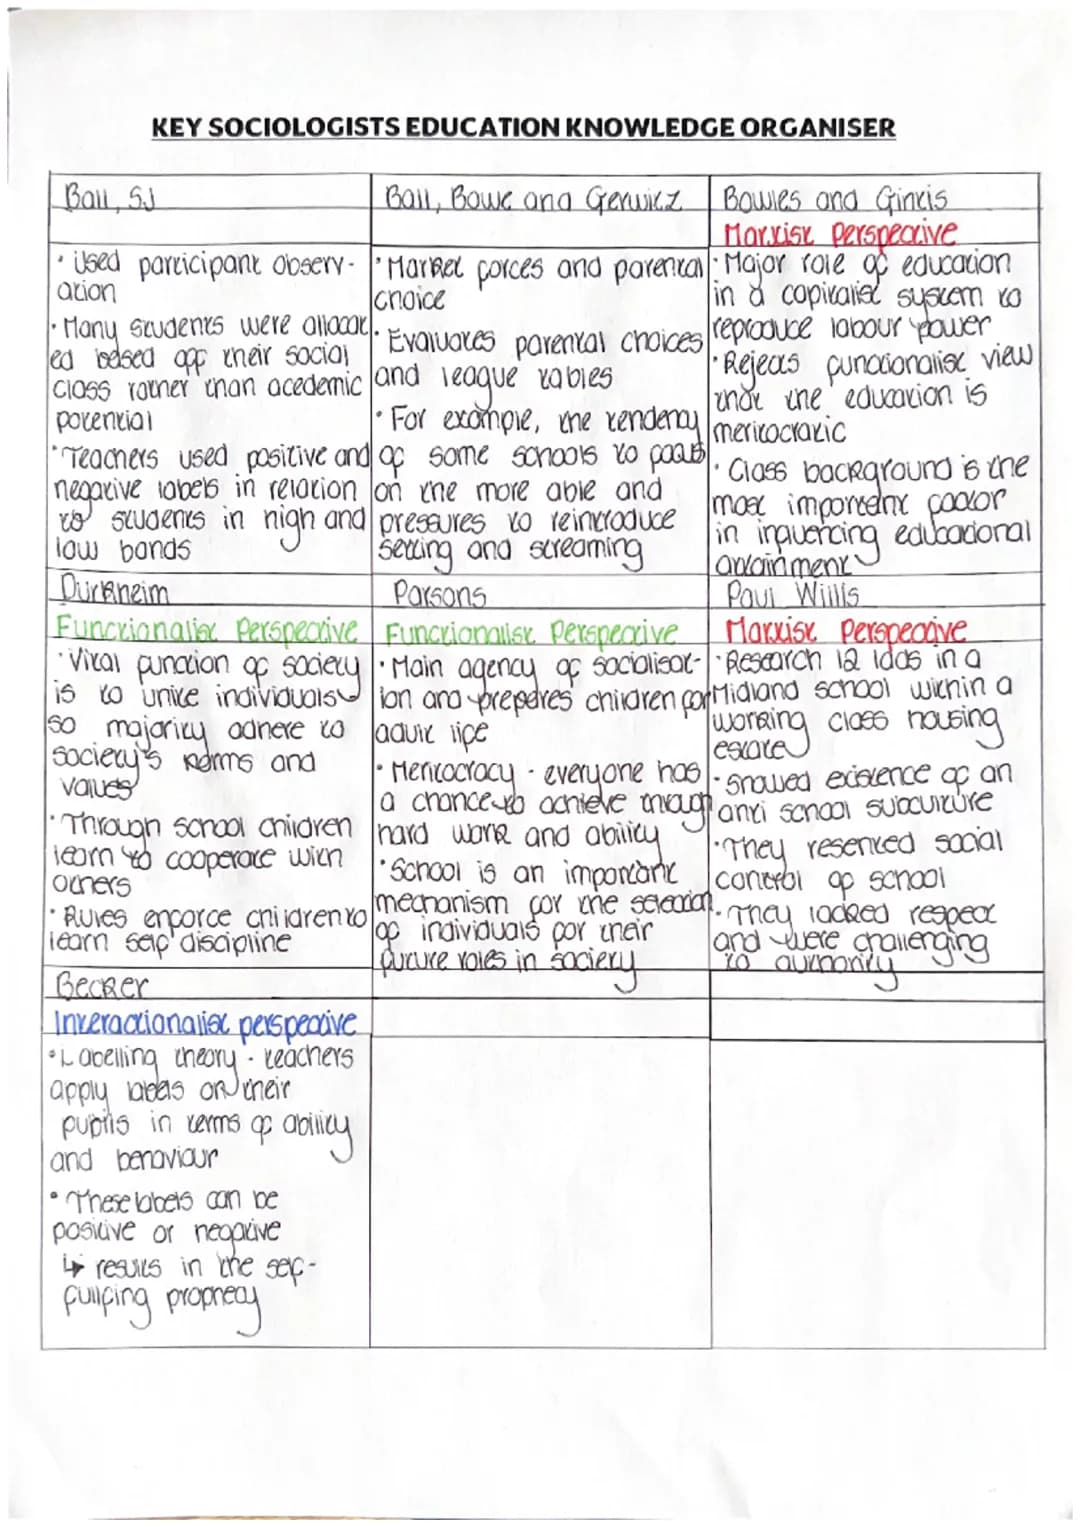 KEY SOCIOLOGISTS EDUCATION KNOWLEDGE ORGANISER
Ball, SJ
• Used participant observ-
ation
• Many students were allocat
ed based off their social
class rather than acedemic
potential
• Teachers used positive and
negative labels in relation
to students in high and
low bands
Ball, Bowe and Gerwitz
• Market forces and parental
choice
• Evaluates parental choices
and league tables
• For example, the tendency
of some schools to focus
on the more able and
pressures to reintroduce
setting and screaming
Bowles and Gintis
Marxist Perspective
• Major role of education
in a capitalist system to
reproduce labour power
• Rejects functionalist view
that the education is
meritocratic
• Class background is the
most important factor
in influencing educational
attainment
Durkheim
Functionalist Perspective
• Vital function of society
is to unite individuals
so majority adhere to
society's norms and
values
• Through school children
learn to cooperate with
others
• Rules enforce children to
learn self discipline
Parsons
Functionalist Perspective
• Main agency of socialisat-
ion and prepares children for
adult life
• Meritocracy - everyone has
a chance to achieve through
hard work and ability
• School is an important
mechanism for the selection
of individuals for their
future roles in society
Paul Willis
Marxist Perspective
• Research 12 lads in a
Midland school within a
working class housing
estate
• Showed existence of an
anti school subculture
• They resented social
control of school
• They lacked respect
and were challenging
to authority
Becker
Interactionalist perspective
• Labelling theory - teachers
apply labels on their
pupils in terms of ability
and behaviour
• These labels can be
positive or negative
↳ results in the self-
fulfing prophecy